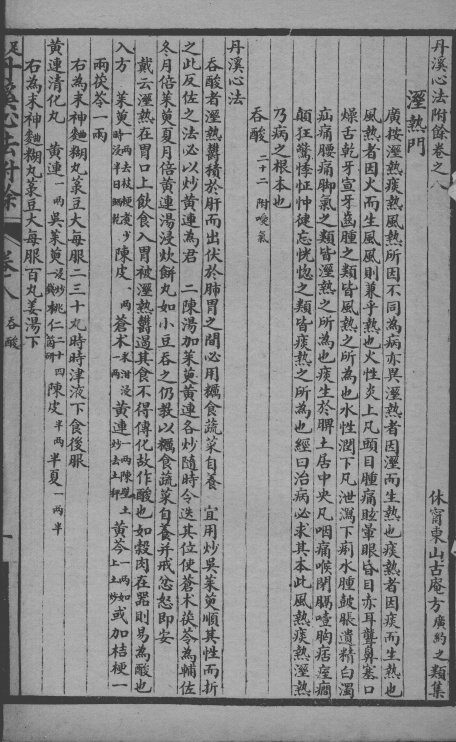 丹溪心法附餘卷之八
休甯東山古庵方廣約之類集
溼熱門
廣按溼熱痰熱風熱所因不同為病亦異溼熱者因溼而生熱也痰熱者因痰而生熱也
風熱者因火而生風風則兼乎熱也火性炎上凡頭目腫痛眩暈眼昏目赤耳聾鼻塞口
燥舌乾牙宣牙齒腫之類皆風熱之所為也水性潤下凡泄瀉下痢水腫皷脹遺精白濁
疝痛腰痛脚氣之類皆溼熱之所為也痰生於脾土居中央凡咽痛喉閉膈噎胸痞痓癎
顛狂驚悸怔忡健忘恍惚之類皆痰熱之所為也經曰治病必求其本此風熱痰熱溼熱
乃病之根本也
吞酸 二十二 附噯氣
丹溪心法
吞酸者溼熱鬱積於肝而出伏於肺胃之間必用糲食蔬菜自養 宜用炒吳茱萸順其性而折
之此反佐之法必以炒黃連為君 二陳湯加茱萸黃連各炒隨時令迭其位使蒼术茯苓為輔佐
冬月倍茱萸夏月倍黃連湯浸炊餅丸如小豆吞之仍教以糲食蔬菜自養并戒忿怒即安
戴云溼熱在胃口上飲食入胃被溼熱鬱遏其食不得傳化故作酸也如穀肉在器則易為酸也
入方 茱萸 去枝梗煮少時浸半日晒乾 陳皮 一兩 蒼术 米泔浸一兩 黃連 一兩陳壁土炒去土秤 黃芩 一兩如上土炒 或加桔梗一
兩茯苓一兩
右為末神麯糊丸菉豆大每服二三十丸時時津液下食後服
黃連清化丸 黃連 一兩 吳茱萸 浸炒 桃仁 二十四箇研 陳皮 半兩 半夏 一兩半
右為末神麯糊丸菉豆大每服百丸姜湯下
丹溪心法附餘 卷八 吞酸 一